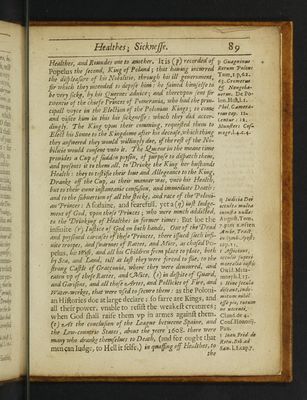 Healthes; Sicknesse. 89
Healthes, and Roundes one to another. It is (p) recorded of
Popelus the second, King of Poland; that having incurred
the displeasure of his Nobilitie, through his ill government,
for which they intended to depose him: he fained himselfe to
be very sicke, by his Queenes advice; and thereupon sent for
twentie of the chiefe Princes of Pomerania, who had the prin-
cipall voyce in the Election of the Polonian Kings; to come
and visite him in this his sicknesse: which they did accor-
dingly. The King upon their comming, requested them to
Elect his Sonne to the Kingdome after his decease, which thing
they answered they would willingly doe, if the rest of the No-
bilitie would consent unto it. The Queene in the meane time
provides a Cup of sudden poyson, of purpose to dispatch them,
and presents it to them all, to Drinke the King her husbands
Health: they to testifie their love and Allegeance to the King,
Dranke off the Cup, as their manner was, unto his Health,
but to their owne instantanie confusion, and immediate Death:
and to the subversion of all the stocke, and race of the Poloni-
an Princes: A sudaine, and fearefull, yet a (q) just Iudge-
ment of God, upon these Princes; who were much addicted,
to the Drinking of Healthes in former times: But loe the
infinite (r) Iustice of God on both hands, Out of the Dead
and poysoned carcases of these Princes, there issued such infi-
nite troopes, and swarmes of Rattes, and Mice, as chased Po-
pelus, his Wife, and all his Children from place to place, both
by Sea, and Land, till at last they were forced to flie, to the
strong Castle of Graccovia, where they were devoured, and
eaten up of these Rattes, and Mice, (s) in despite of Guard,
and Garisons, and all those Artes, and Pollicies of Fire, and
Water-workes, that were used to secure them: as the Poloni-
an Histories doe at large declare: so farre are Kings, and
all their power, vnable to resist the weakest creatures;
when God shall raise them vp in armes against them.
(t) At the conclusion of the League betweene Spaine, and
the Low-countrie States, about the yeare 1608. there were
many who dranke themselves to Death, (and for ought that
men can Iudge, to Hell it selfe.) in quaffing off Healthes, to
the
p Guagninus
Rerum Polon:
Tom. 1. p. 62.
63. Cromerus
& Neugeba-
verus. De Po-
lon. Hist. l. 1.
Phil. Camera-
rius cap.
Centur: 1. &
Munsters Cos-
mogr. l. 4. c. 4.